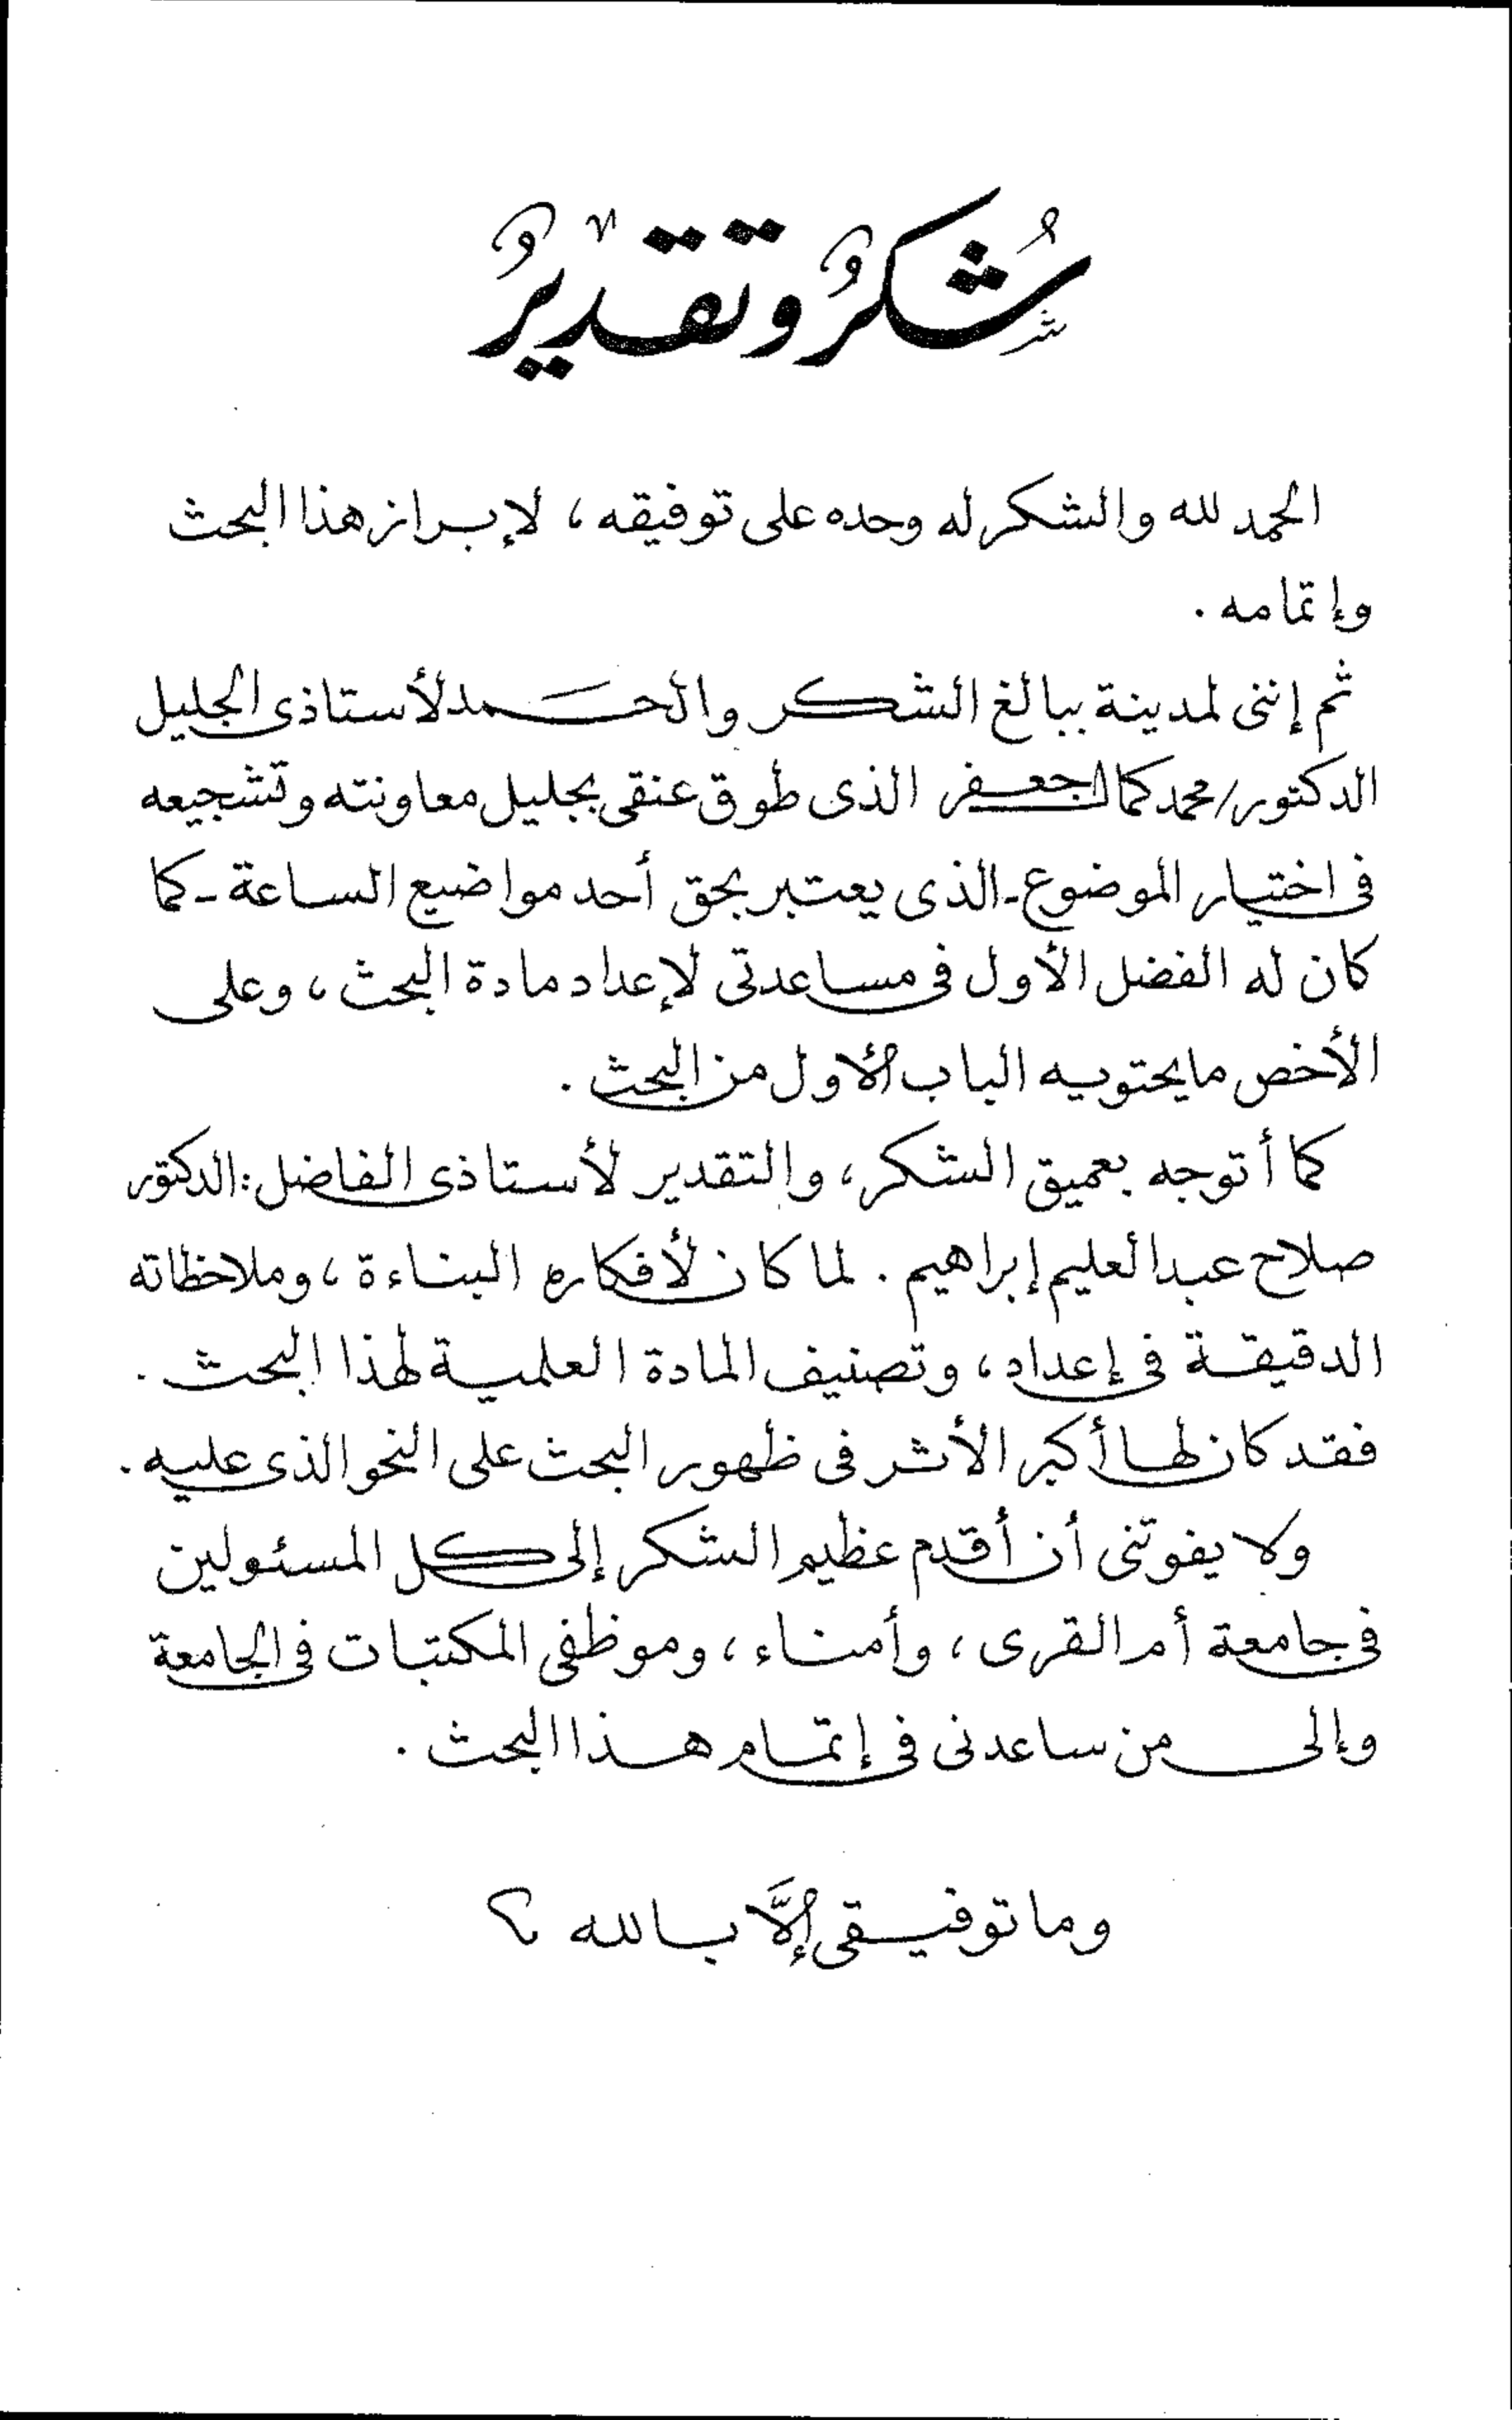 شكرٌ وتقديرٌ
الحمد لله والشكر له وحده على توفيقه، لإبراز هذا البحث
وإتمامه .
ثم إننى لمدينة ببالغ الشكر والحمد لأستاذى الجليل
الدكتور/ محمد كمال جعفر الذى طوق عنقى بجليل معاونته وتشجيعه
فى اختيار الموضوع ـ الذى يعتبر بحق أحد مواضيع الساعة ـ كما
كان له الفضل الأول فى مساعدتى لإعداد مادة البحث، وعلى
الأخص ما يحتويه الباب الأول من البحث .
كما أتوجه بعميق الشكر، والتقدير لأستاذى الفاضل: الدكتور
صلاح عبد العليم إبراهيم . لما كان لأفكاره البناءة، وملاحظاته
الدقيقة فى إعداد، وتصنيف المادة العلمية لهذا البحث .
فقد كان لها أكبر الأثر فى ظهور البحث على النحو الذى عليه .
ولا يفوتنى أن أقدم عظيم الشكر إلى كل المسئولين
فى جامعة أم القرى، وأمناء، وموظفى المكتبات فى الجامعة
وإلى من ساعدنى فى إتمام هذا البحث .
وما توفيقى إلَّا بالله ؟